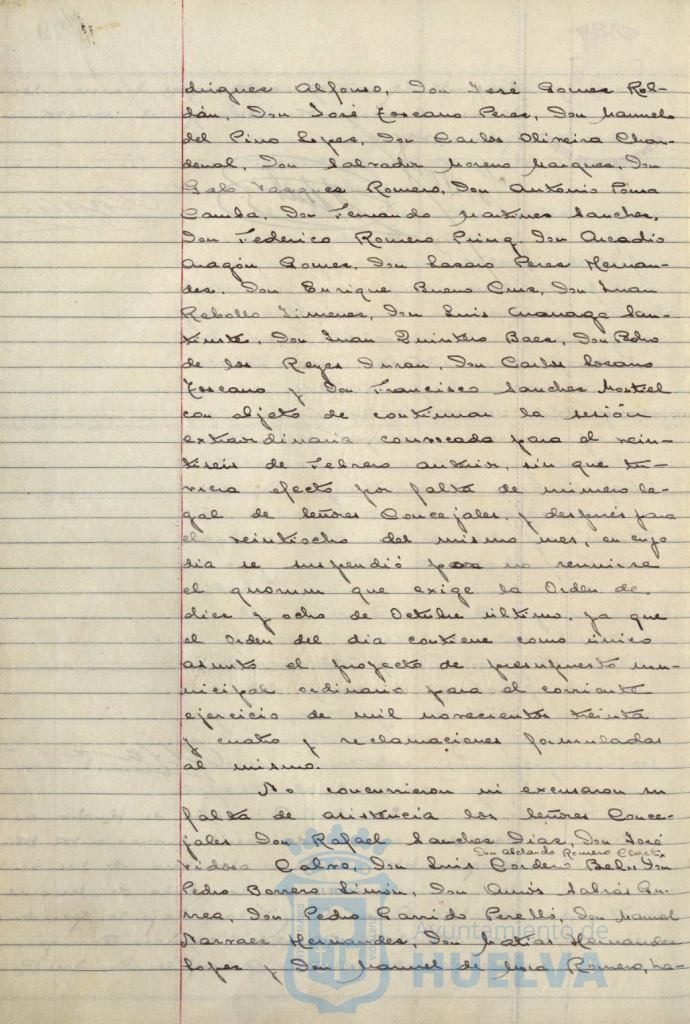 drigues Alfonso, Don José Gomes Rol-
dán, Don José Toscano Peres, Don Manuel
del Pino Lopes, Don Carlos Oliveira Chan-
denal, Don Salvador Moreno Marques, Don
Galo Vasques Romero, Don Antonio Ponce
Camba, Don Fernando Martines Sanches,
Don Federico Romero Pring, Don Arcadio
Aragón Gomes, Don Lasaro Peres Hernan-
des, Don Enrique Bueno Crus, Don Juan
Rebollo Jimenes, Don Luis
Don Juan Quintero Baes, Don Pedro
de los Reyes Duran, Don Carlos Losano
Toscano y Don Francisco Sanches Montiel
con objeto de continuar la sesión
extraordinaria convocada para el vein-
tiseis de Febrero anterior, sin que tu-
viera efecto por falta de número le-
gal de Señores Concejales, y después para
el veintiocho del mismo mes, en cuyo
dia se suspendió por no reunirse
el quorum que exige la Orden de
dies y ocho de Octubre último, ya que
el Orden del dia contiene como único
asunto el proyecto de presupuesto mu-
nicipal ordinario para el corriente
ejercicio de mil novecientos treinta
y cuatro y reclamaciones formuladas
al mismo.
No concurrieron ni excusaron su
falta de asistencia los Señores Conce-
jales Don Rafael Sanches Dias, Don José
Don Abelardo Romero Claret
Vidosa Calvo, Don Luis Cordero Bel, Don
Pedro Borrero Limón, Don Amós Sabrás Gu-
rrea, Don Pedro Garrido Perelló, Don Manuel
Narvaes Hernandes, Don Matias Hernandes
Lopes y Don Manuel de Mora Romero, ha-
Ayuntamiento de
HUELVA